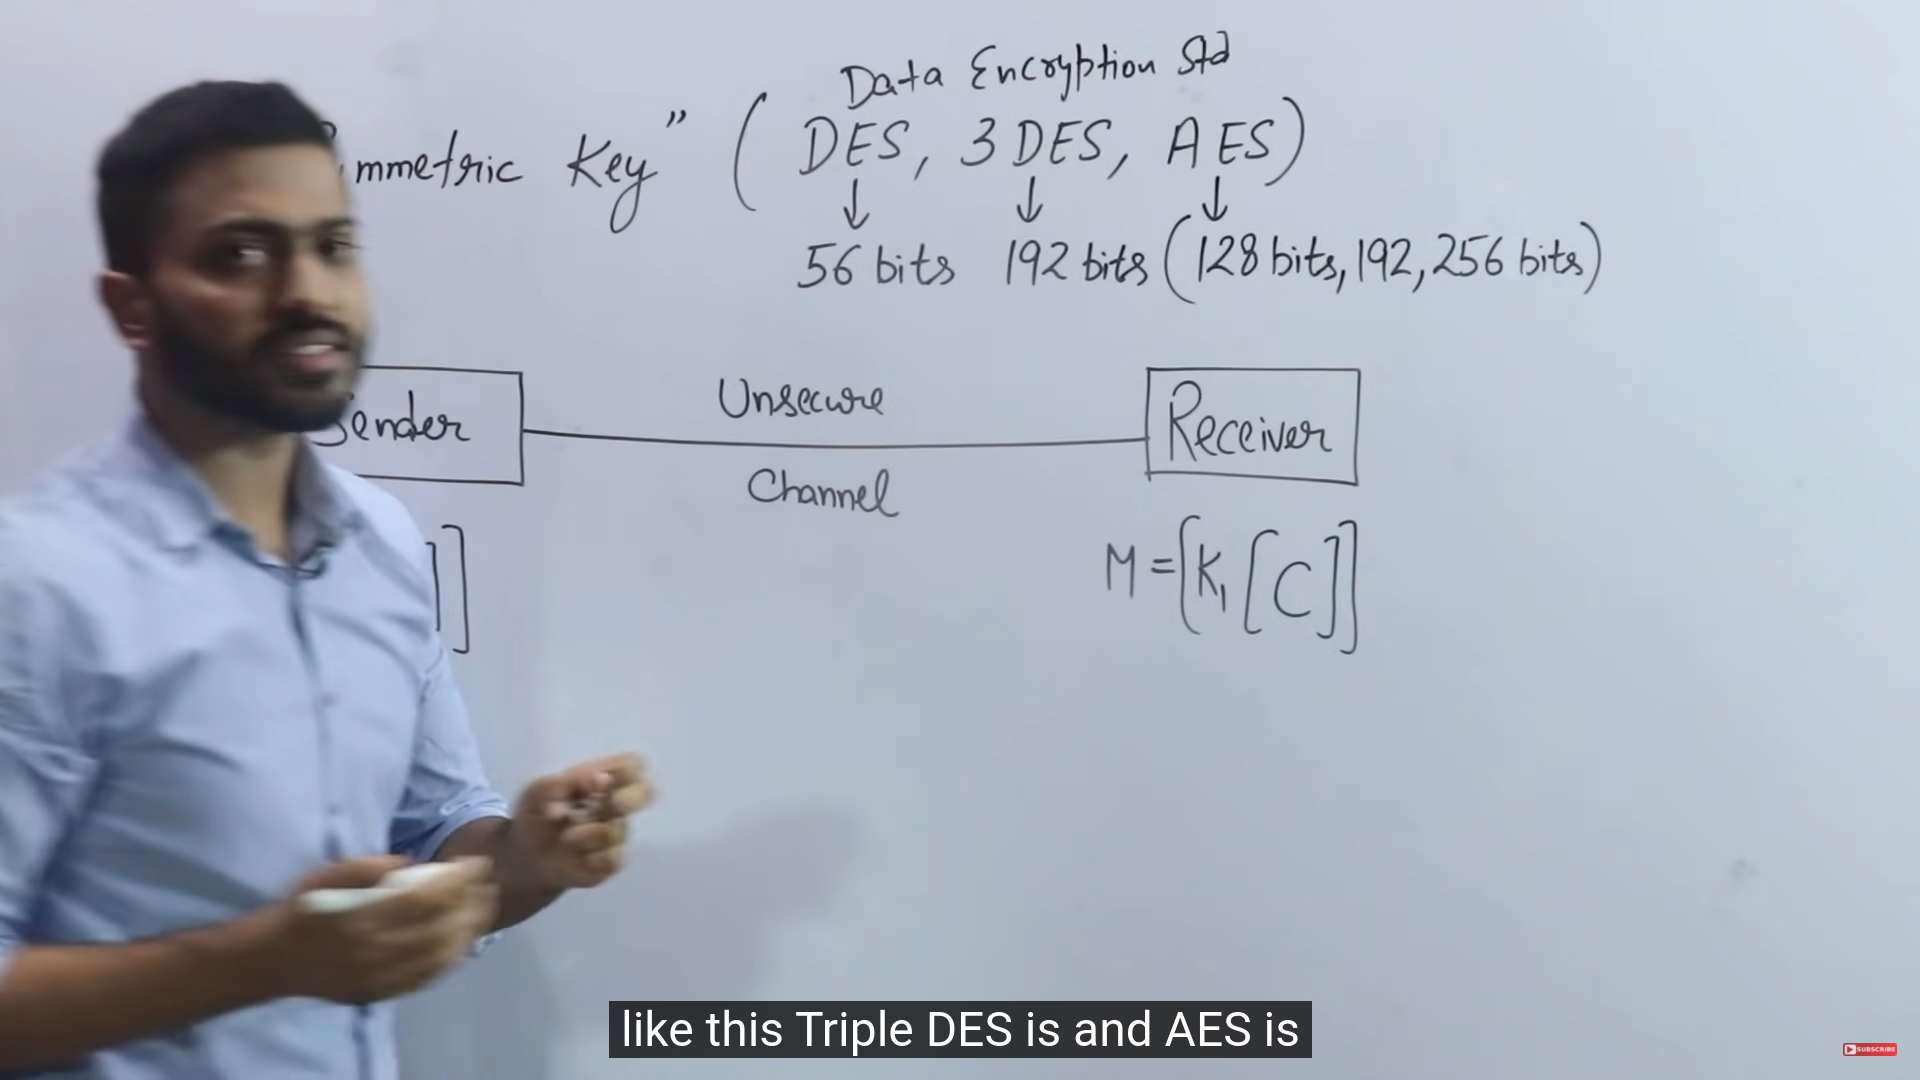 Data Encryption Std
mmetric Key" ( DES, 3 DES, AES)
56 bits 192 bits (128 bits, 192, 256 bits)
Sender
Unsecure
Receiver
Channel
]]
M = [K1 [C]]
like this Triple DES is and AES is
SUBSCRIBE